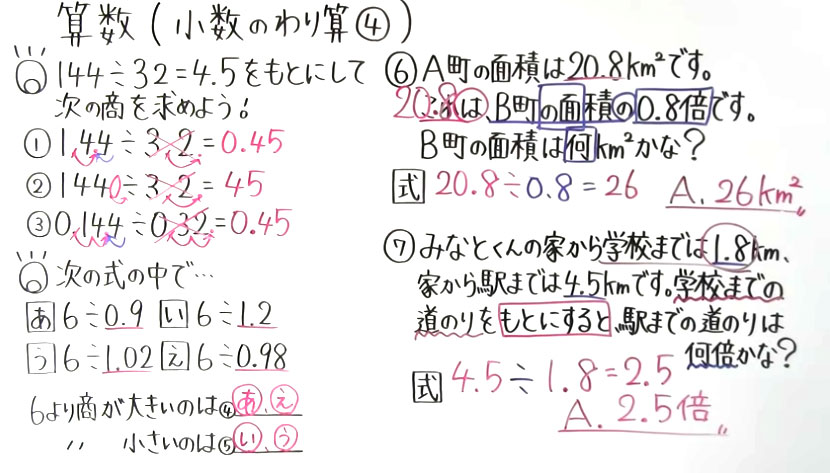 算数(小数のわり算④)
144÷32=4.5をもとにして
次の商を求めよう!
①1.44÷3.2=0.45
②1440÷3.2=45
③0.144÷0.32=0.45
次の式の中で…
あ 6÷0.9 い 6÷1.2
う 6÷1.02 え 6÷0.98
6より商が大きいのは④あ、え
〃 小さいのは⑤い、う
⑥A町の面積は20.8km²です。
20.8 これは、B町の面積の0.8倍です。
B町の面積は何km²かな?
式 20.8÷0.8=26 A.26km²
⑦みなとくんの家から学校までは1.8km、
家から駅までは4.5kmです。学校までの
道のりをもとにすると、駅までの道のりは
何倍かな?
式 4.5÷1.8=2.5
A.2.5倍